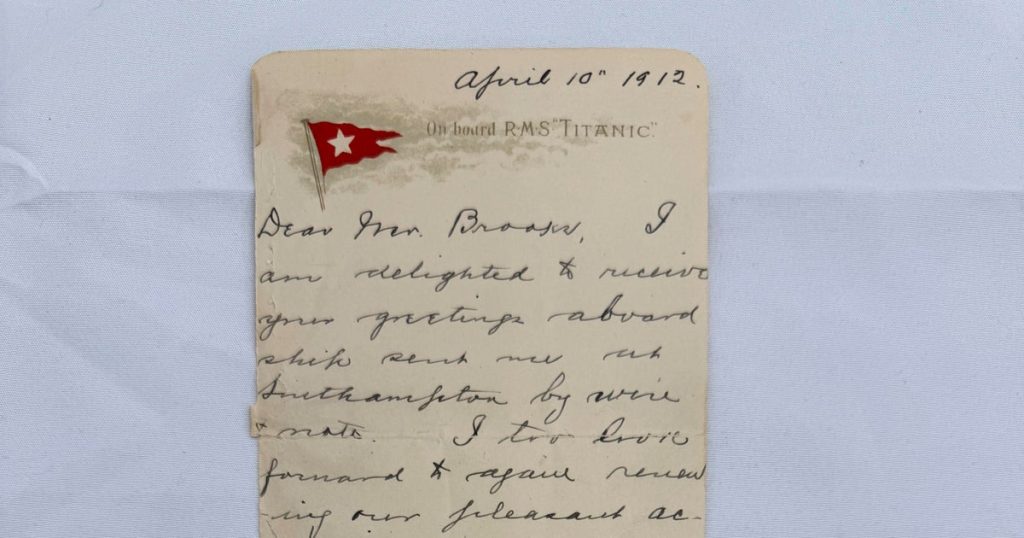 April 10" 1912.
On board R·M·S "TITANIC".
Dear Mr. Brooks, I
am delighted to receive
your greetings aboard
ship sent me at
Southampton by wire
& note. I too look
forward to again renew
-ing our pleasant ac-